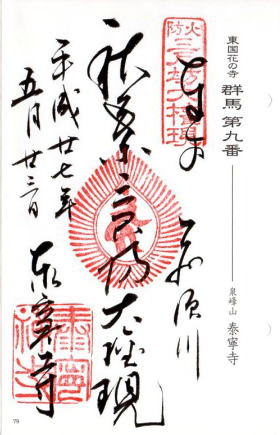 東国花の寺 群馬 第九番
泉峰山 泰寧寺
火防
三尺坊大権現
奉拝
秋葉三尺坊大権現
平成廿七年
五月廿三日
泰寧寺
79